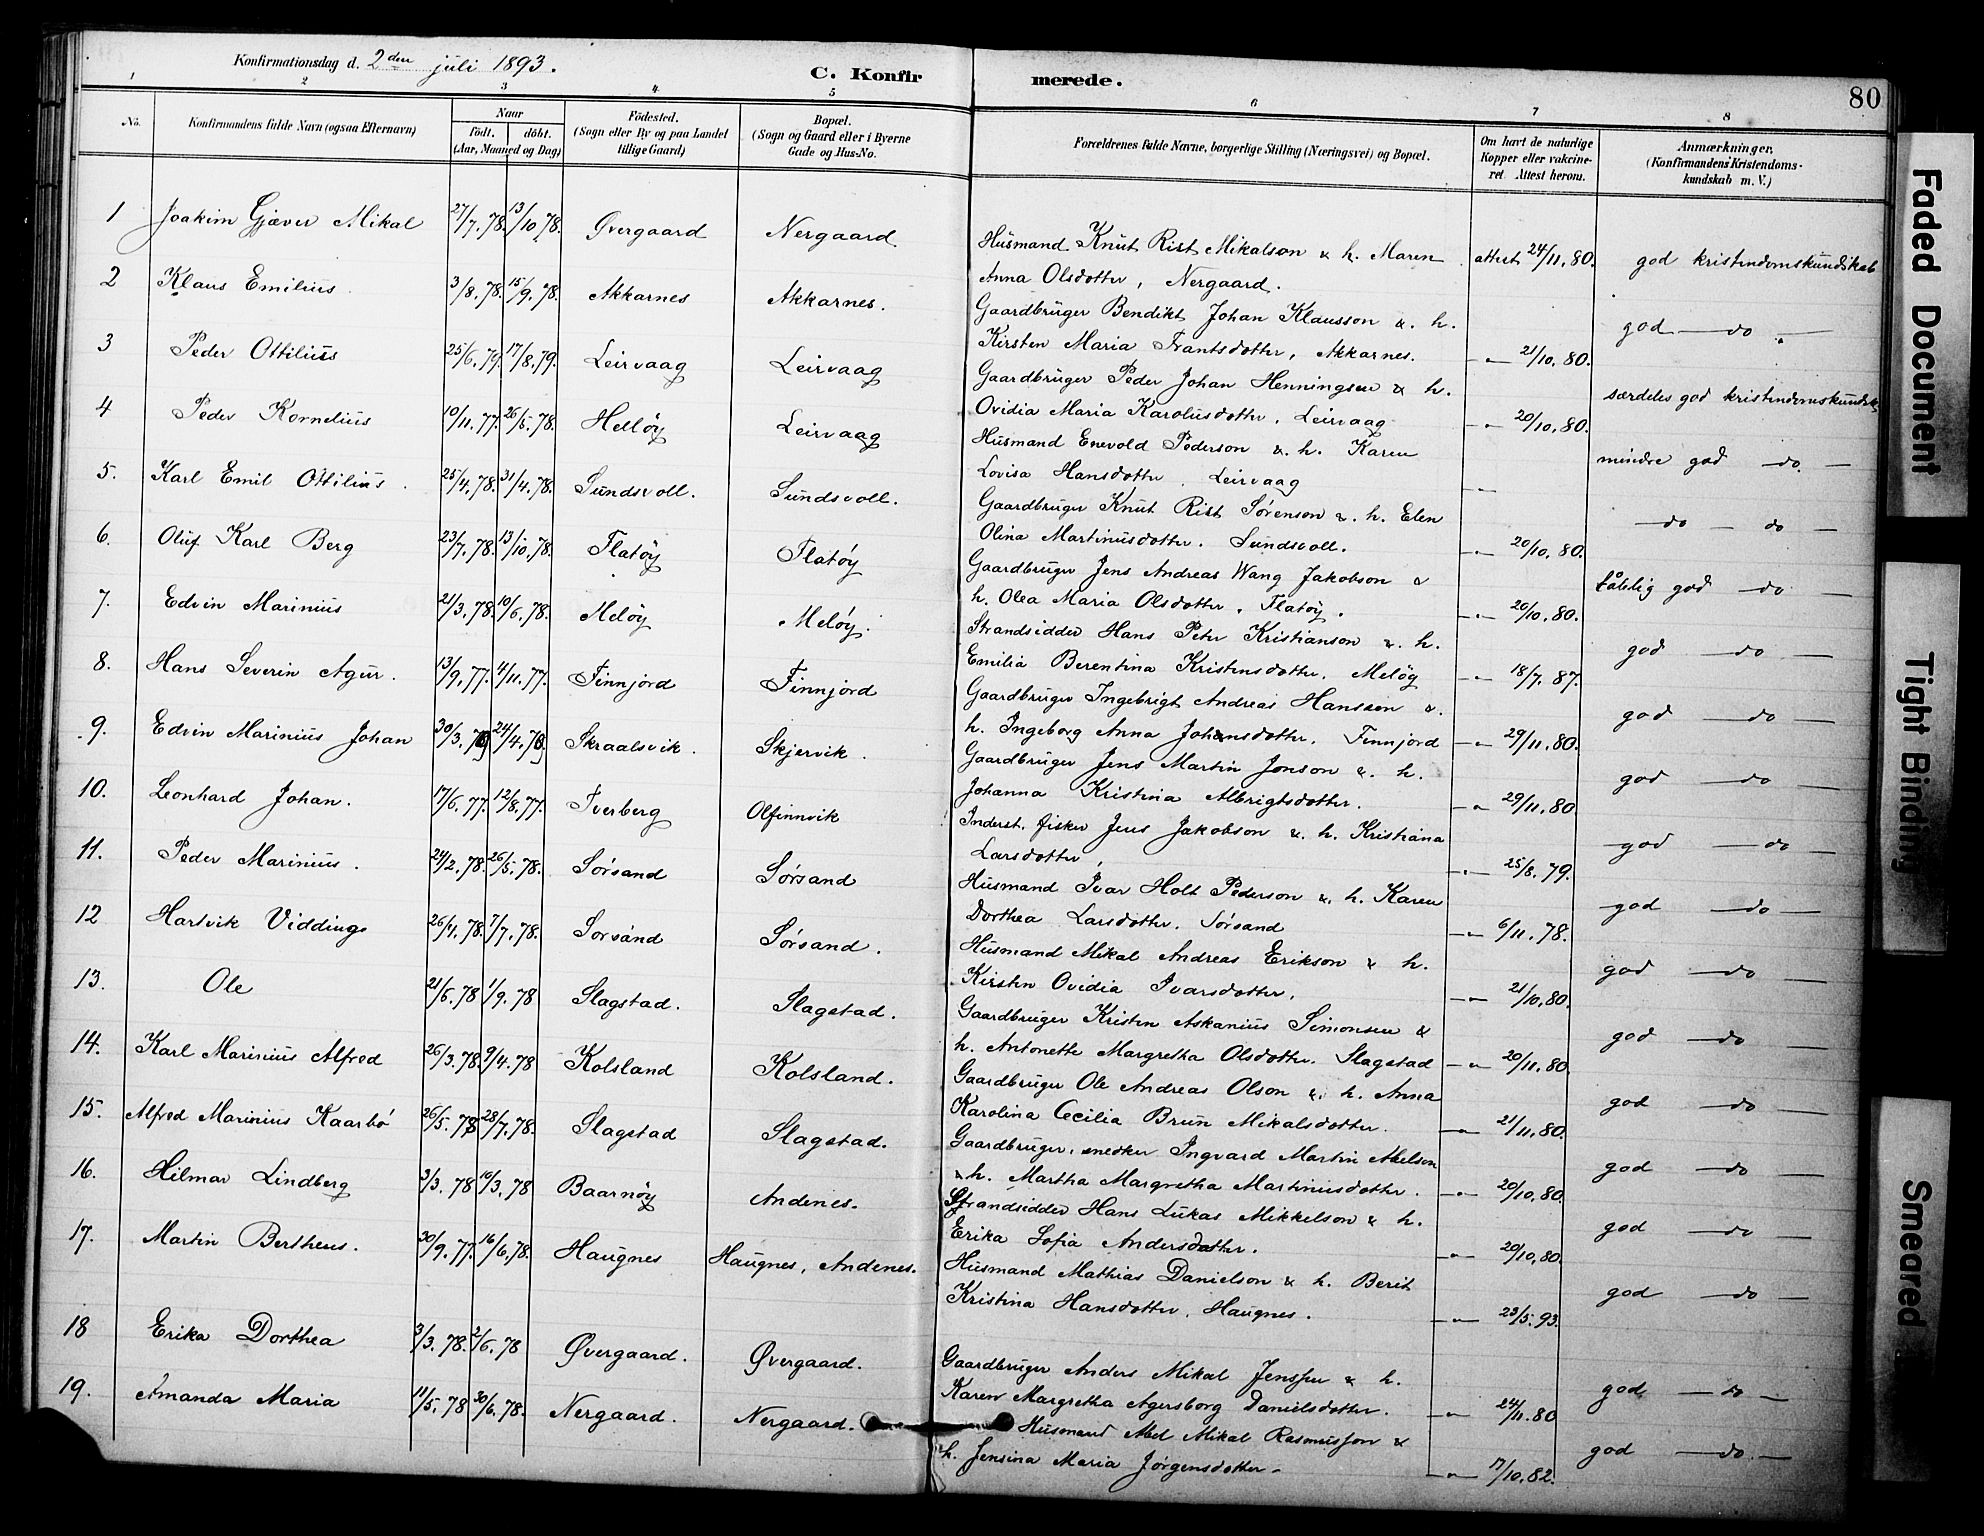 Konfirmationsdag d. 2den juli 1893.
C. Konfirmerede.
80
1 2 3 4 5 6 7 8
No.
Konfirmandens fulde Navn (ogsaa Efternavn)
Naar
Födt. döbt.
(Aar, Maaned og Dag)
Födested.
(Sogn eller By og paa Landet
tillige Gaard)
Bopæl.
(Sogn og Gaard eller i Byerne
Gade og Hus-No.
Forældrenes fulde Navne, borgerlige Stilling (Næringsvei) og Bopæl.
Om havt de naturlige
Kopper eller vakcine-
ret. Attest herom.
Anmærkninger.
(Konfirmandens Kristendoms-
kundskab m. V.)
1 Joakim Gjæver Mikal 27/7.78. 13/10.78. Øvergaard Nergaard.
Husmand Knut Rist Mikalson & h. Maren
Anna Olsdotter, Nergaard.
attest 24/11.80. god kristendomskundskab
2 Klaus Emilius 3/8.78. 15/9.78. Akkarnes Akkarnes.
Gaardbruger Bendikt Johan Klausson & h.
Kirsten Maria Frantsdotter, Akkarnes.
—„— 21/10.80. god — do —
3 Peder Ottilius 25/6.79. 17/8.79. Leirvaag Leirvaag
Gaardbruger Peder Johan Henningsen & h.
Ovidia Maria Karolusdotter, Leirvaag
—„— 20/10.80. særdeles god kristendomskundsk.
4 Peder Kornelius 10/11.77. 26/5.78. Helløy Leirvaag
Husmand Enevold Pederson & h. Karen
Lovisa Hansdotter. Leirvaag
—„— mindre god — do. —
5. Karl Emil Ottilius. 25/4.78. 31/4.78. Sundsvoll. Sundsvoll.
Gaardbruger Knut Rist Sørenson & h. Elen
Olina Martinusdotter. Sundsvoll.
—„— 20/10.80. — do — do —
6. Oluf Karl Berg 23/7.78. 13/10.78. Flatöy Flatöy
Gaardbruger Jens Andreas Wang Jakobson &
h. Olea Maria Olsdotter. Flatöy.
—„— 20/10.80. tålelig god — do —
7. Edvin Marinius 21/3.78. 10/6.78. Melöy Melöy.
Strandsidder Hans Peter Kristianson & h.
Emilia Berentina Kristensdotter. Melöy
—„— 18/7.87. god — do —
8. Hans Severin Agur. 13/9.77. 4/11.77. Finnjord Finnjord
Gaardbruger Ingebrigt Andreas Hansson &
h. Ingeborg Anna Johansdotter. Finnjord
—„— 29/11.80. god — do —
9. Edvin Marinius Johan 30/3.79 24/4.79 Skraalsvik. Skjervik.
Gaardbruger Jens Martin Jonson & h.
Johanna Kristina Albrigtsdotter.
—„— 29/11.80. god — do —
10. Leonhard Johan. 17/6.77. 12/8.77. Tverberg Olfinnvik
Inderst. fisker Jens Jakobson & h. Kristiana
Larsdotter,
—„— 25/8.79. god — do —
11. Peder Marinius. 24/2.78. 26/5.78. Sørsand Sørsand
Husmand Ivar Holt Pederson & h. Karen
Dorthea Larsdotter. Sørsand
—„— 6/11.78. god — do —
12 Hartvik Viddings 26/4.78. 7/7.78. Sørsand Sørsand.
Husmand Mikal Andreas Erikson & h.
Kirsten Ovidia Ivarsdotter.
—„— 21/10.80. god — do —
13. Ole 21/6.78 1/9.78 Slagstad. Slagstad.
Gaardbruger Kristen Askanius Simonsen &
h. Antonette Margretha Olsdotter. Slagstad
—„— 20/11.80. god — do —
14. Karl Marinius Alfred 26/3.78. 9/4.78 Kolsland Kolsland.
Gaardbruger Ole Andreas Olson & h. Anna
Karolina Cecilia Brun Mikalsdotter.
—„— 21/11.80. god — do —
15. Alfred Marinius Kaarbö 26/5.78 28/7.78. Slagstad Slagstad.
Gaardbruger, snedker Ingvard Martin Abelson
& h. Martha Margretha Martiniusdotter.
—„— 20/10.80 god — do —
16. Hilmar Lindberg 3/3.78 10/3.78 Baarnöy Andenes.
Strandsidder Hans Lukas Mikkelson & h.
Erika Sofia Andersdatter.
—„— 20/10.80. god — do —
17. Martin Bertheus. 30/9.77. 16/6.78. Haugnes Haugnes, Andenes.
Husmand Mathias Danielson & h. Berit
Kristina Hansdotter, Haugnes.
—„— 23/5.93. god — do —
18 Erika Dorthea 3/3.78. 2/6.78 Øvergaard. Øvergaard.
Gaardbruger Anders Mikal Jensson & h.
Karen Margretha Agersborg Danielsdotter.
—„— 24/11.80 god — do —
19. Amanda Maria 11/5.78 30/6.78. Nergaard. Nergaard.
Husmand Abel Mikal Rasmusson &
h. Jensina Maria Jørgensdotter.
—„— 17/10.82. god — do. —
Faded Document
Tight Binding
Smeared